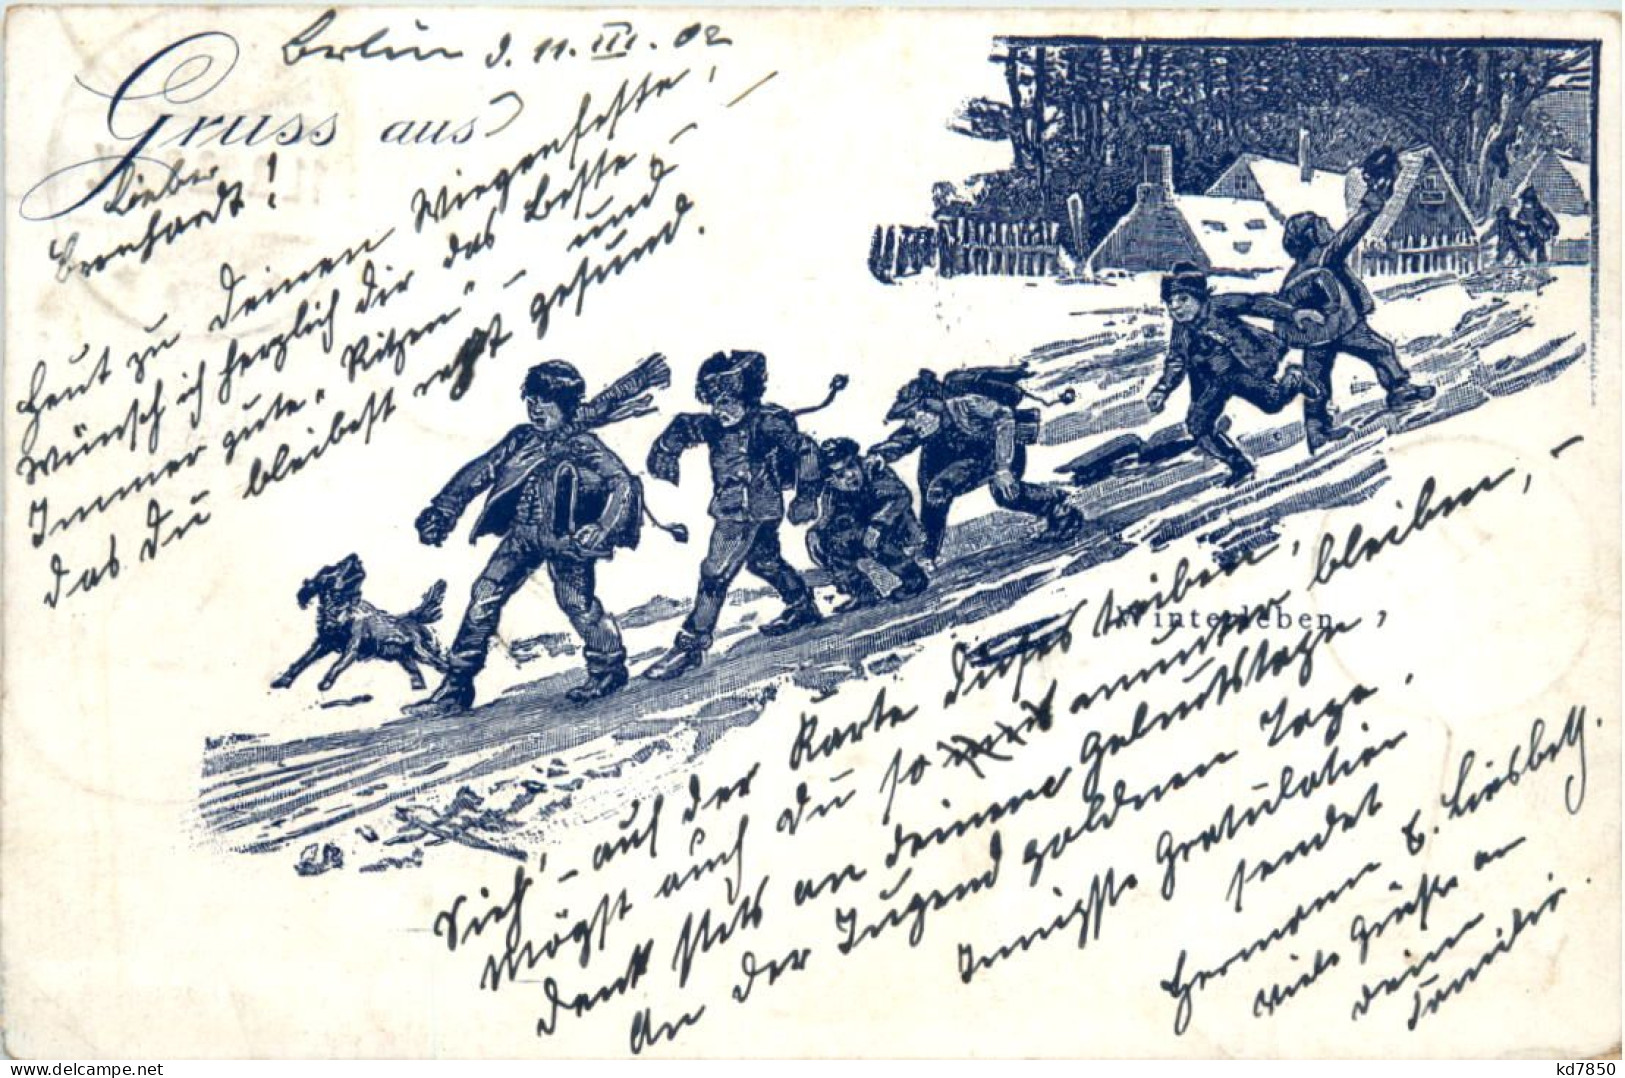 Berlin d. 11. III. 02
Gruss aus
Lieber
Bernhardt!
Heut zu deinen Wiegenfeste,
Wünsch ich herzlich dir das Beste –
Immer gute "Ritzen" – und
das Du bleibest recht gesund.
Winterleben.
Sieh' – auf der Karte dieses treiben,
Mögst auch Du so munter bleiben, –
Denk stets an deinem Geburtstage,
An der Jugend goldnen Tage.
Innigste Gratulation
sendet
Hermann & Liesbeth.
Viele Grüße an
deine
Familie.
kd7850